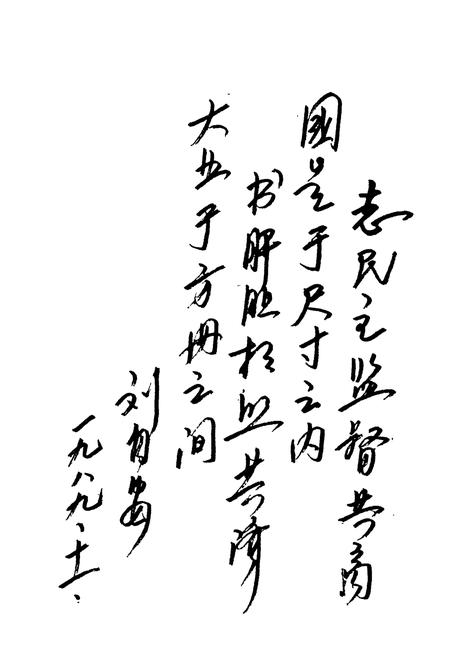 志民主监督共商
國是于尺寸之内
书肝胆相照共济
大业于方册之间
刘自
一九八九、十一、